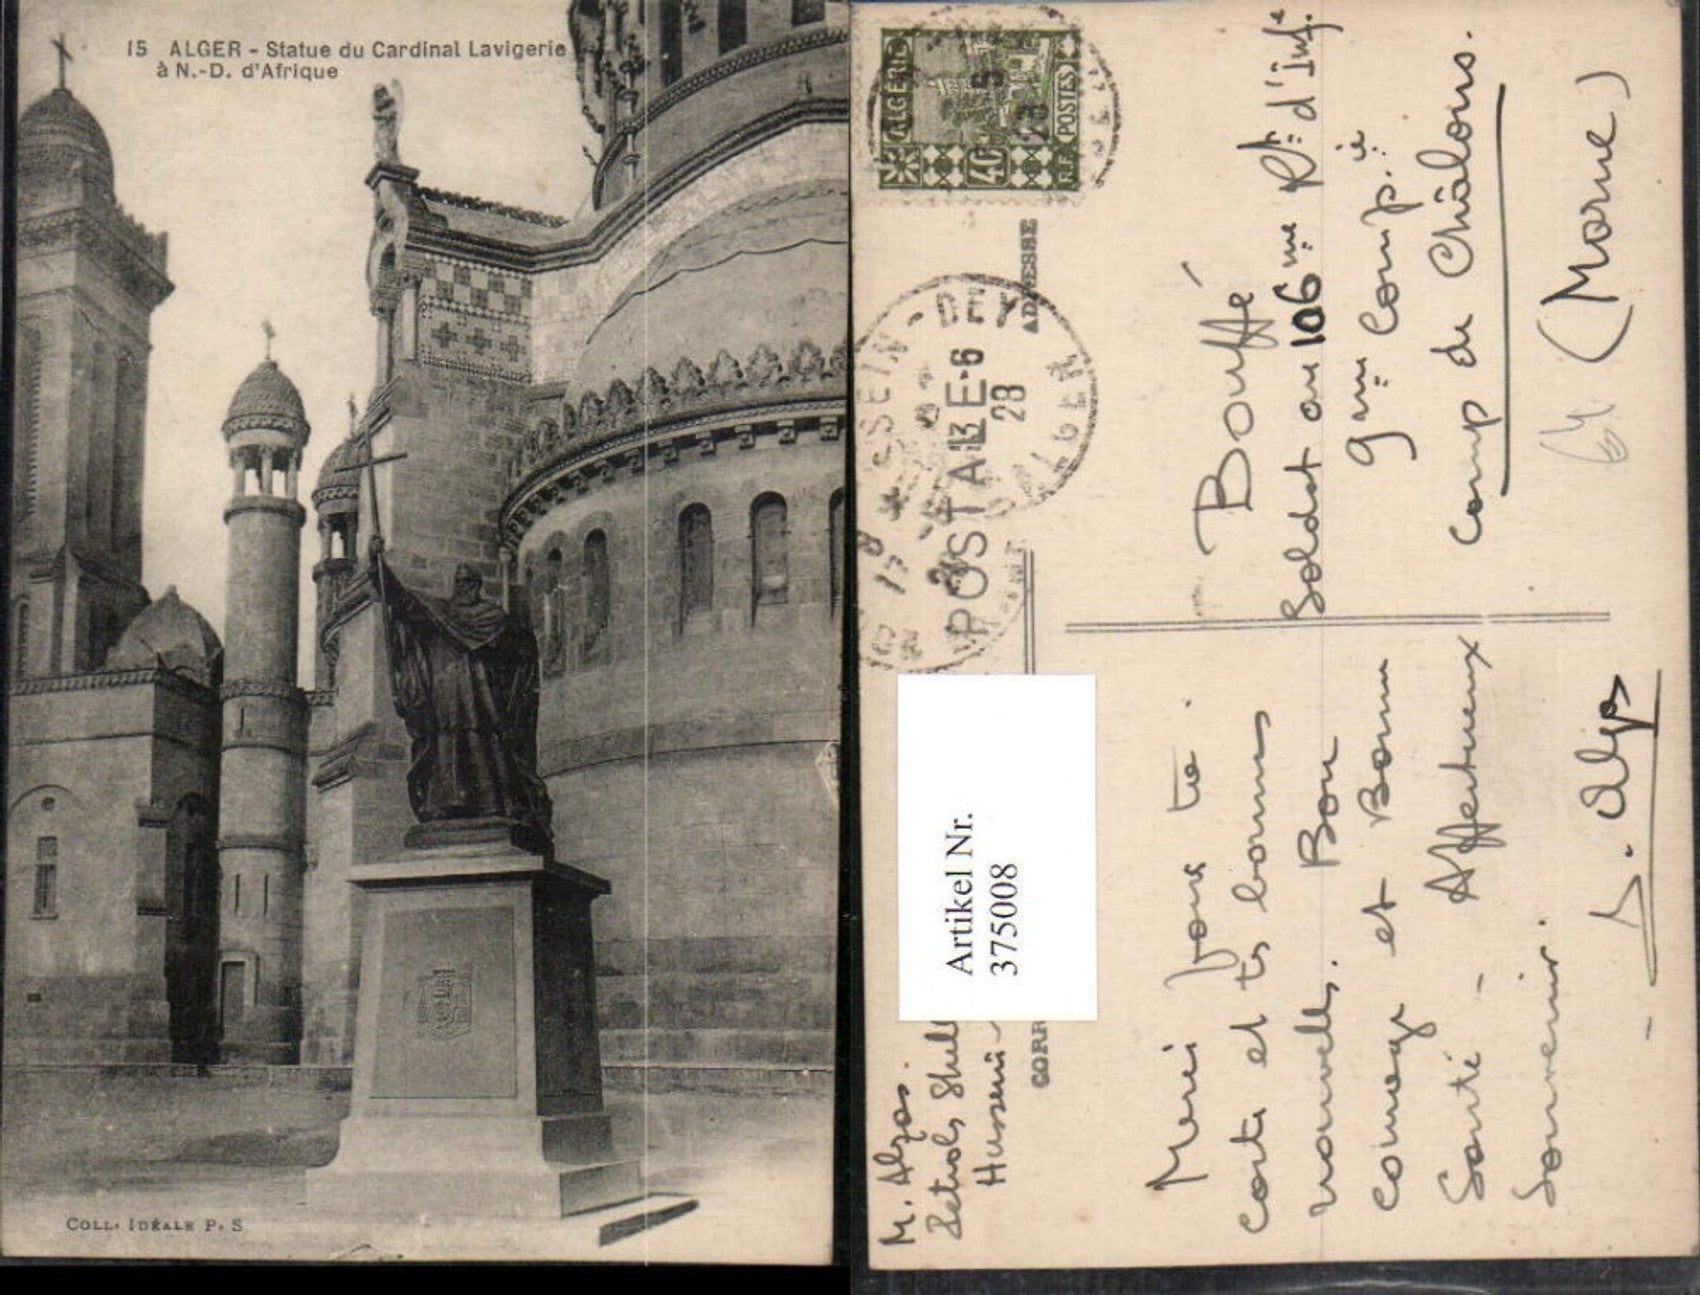 15 ALGER - Statue du Cardinal Lavigerie
à N.-D. d'Afrique
COLL. IDÉALE P. S
ALGÉRIE
40
POSTES
R.F.
ADRESSE
HUSSEIN-DEY
POSTALE
13 E - 6
28
ALGER
CORR
Artikel Nr.
375008
Bouffé
Soldat au 106me Rt d'Infie
9me Comp.ie
Camp de Châlons.
(Marne)
M. Alzas.
Petrols Shell
Hussein-
Merci pour ta
carte et ts bonnes
nouvelles. Bon
courage et Bonne
Santé - Affectueux
Souvenir.